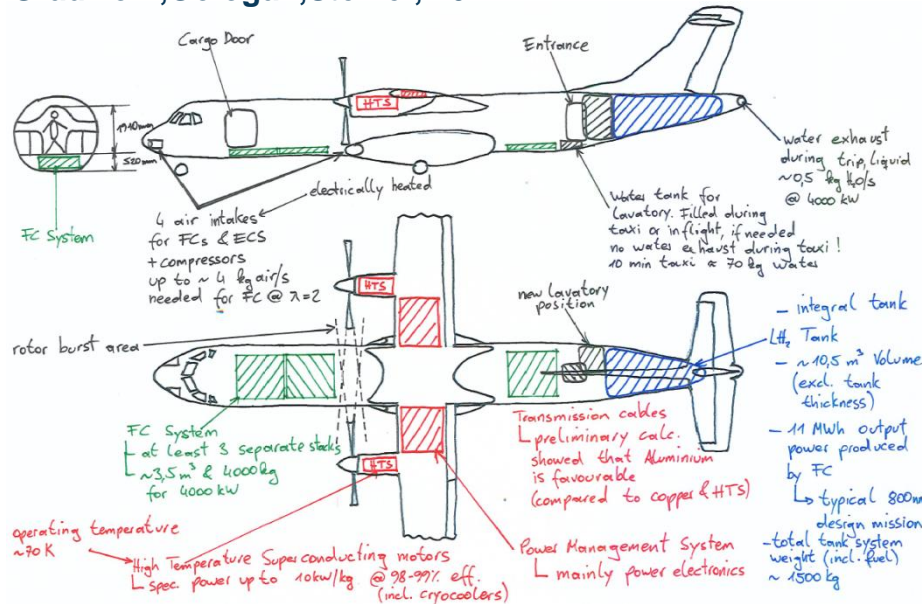 Cargo Door
Entrance
HTS
1910mm
520mm
FC System
4 air intakes
for FCs & ECS
+ compressors
up to ~ 4 kg air/s
needed for FC @ λ=2
electrically heated
Water tank for
lavatory. Filled during
taxi or inflight, if needed
no water exhaust during taxi !
10 min taxi ≈ 70 kg water
water exhaust
during trip, liquid
~0,5 kg H₂O/s
@ 4000 kW
rotor burst area
HTS
new lavatory
position
- integral tank
LH₂ Tank
- ~10,5 m³ Volume
(excl. tank
thickness)
- 11 MWh output
power produced
by FC
↳ typical 800nm
design mission
- total tank system
weight (incl. fuel)
~ 1500 kg
FC System
- at least 3 separate stacks
- ~3,5 m³ & 4000kg
for 4000 kW
HTS
Transmission cables
preliminary calc.
showed that Aluminium
is favourable
(compared to copper & HTS)
operating temperature
~70 K
High Temperature Superconducting motors
spec. power up to 10kW/kg @ 98-99% eff.
(incl. cryocoolers)
Power Management System
mainly power electronics